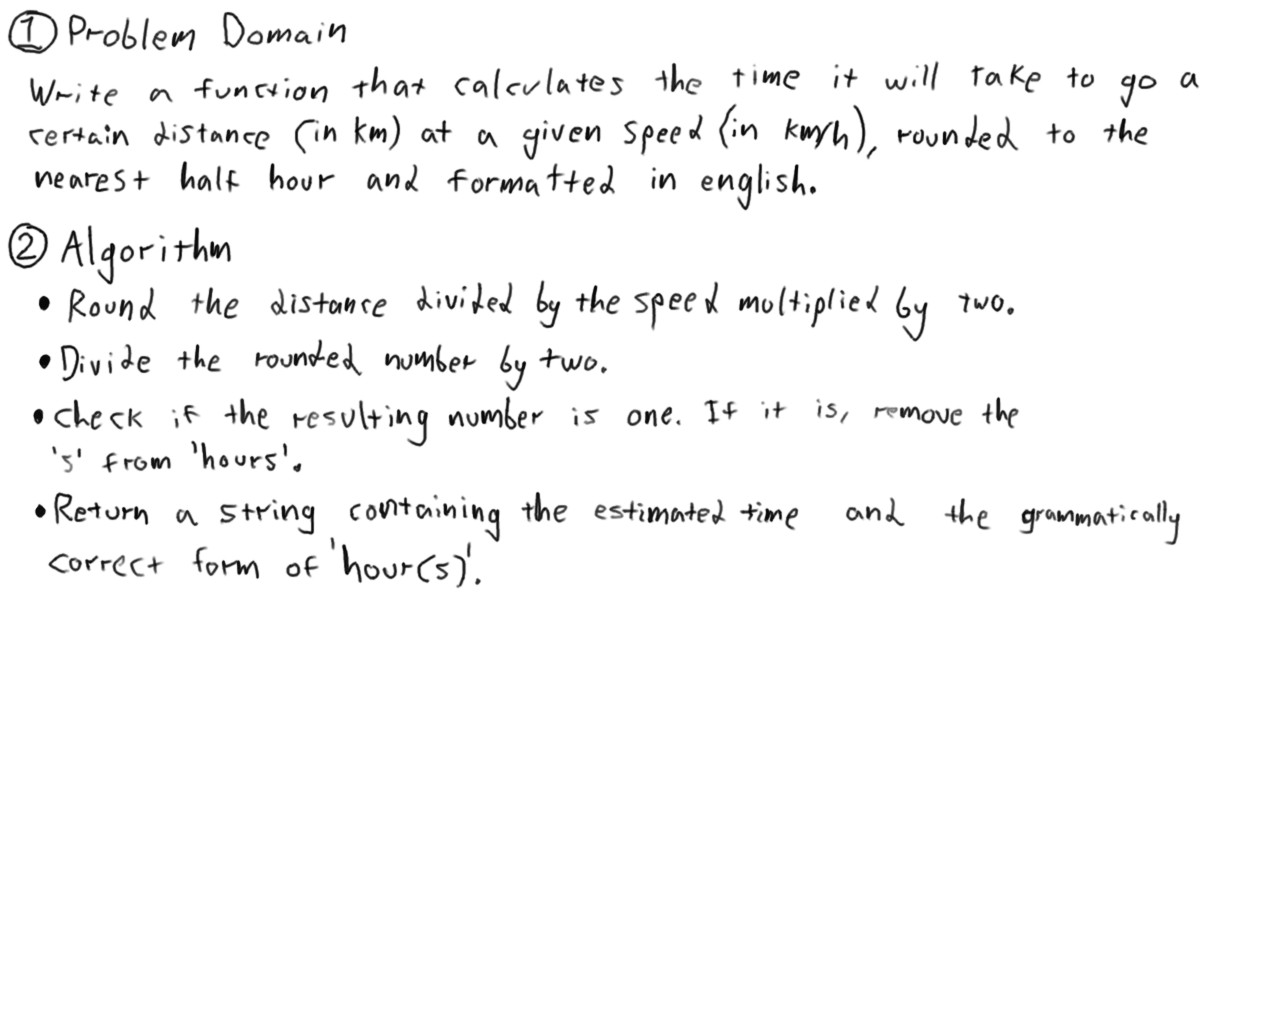 ① Problem Domain
Write a function that calculates the time it will take to go a
certain distance (in km) at a given speed (in km/h), rounded to the
nearest half hour and formatted in english.
② Algorithm
• Round the distance divided by the speed multiplied by two.
• Divide the rounded number by two.
• Check if the resulting number is one. If it is, remove the
's' from 'hours'.
• Return a string containing the estimated time and the grammatically
correct form of 'hour(s)'.